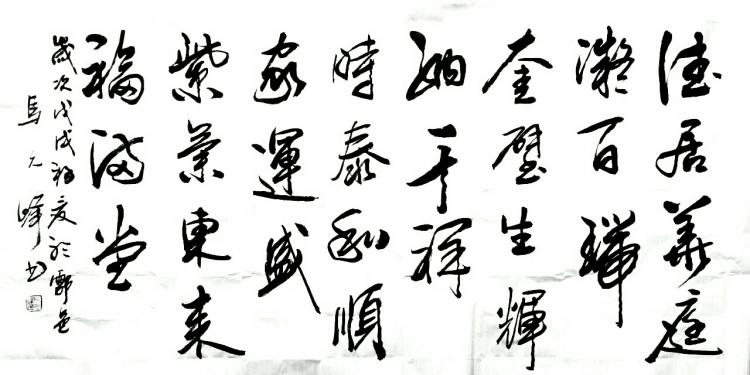 佳居華庭
凝百瑞
奎壁生輝
納千祥
時泰和順
家運盛
紫氣東來
福滿堂
歲次戊戌初夏於鄠邑
馬元鋒書